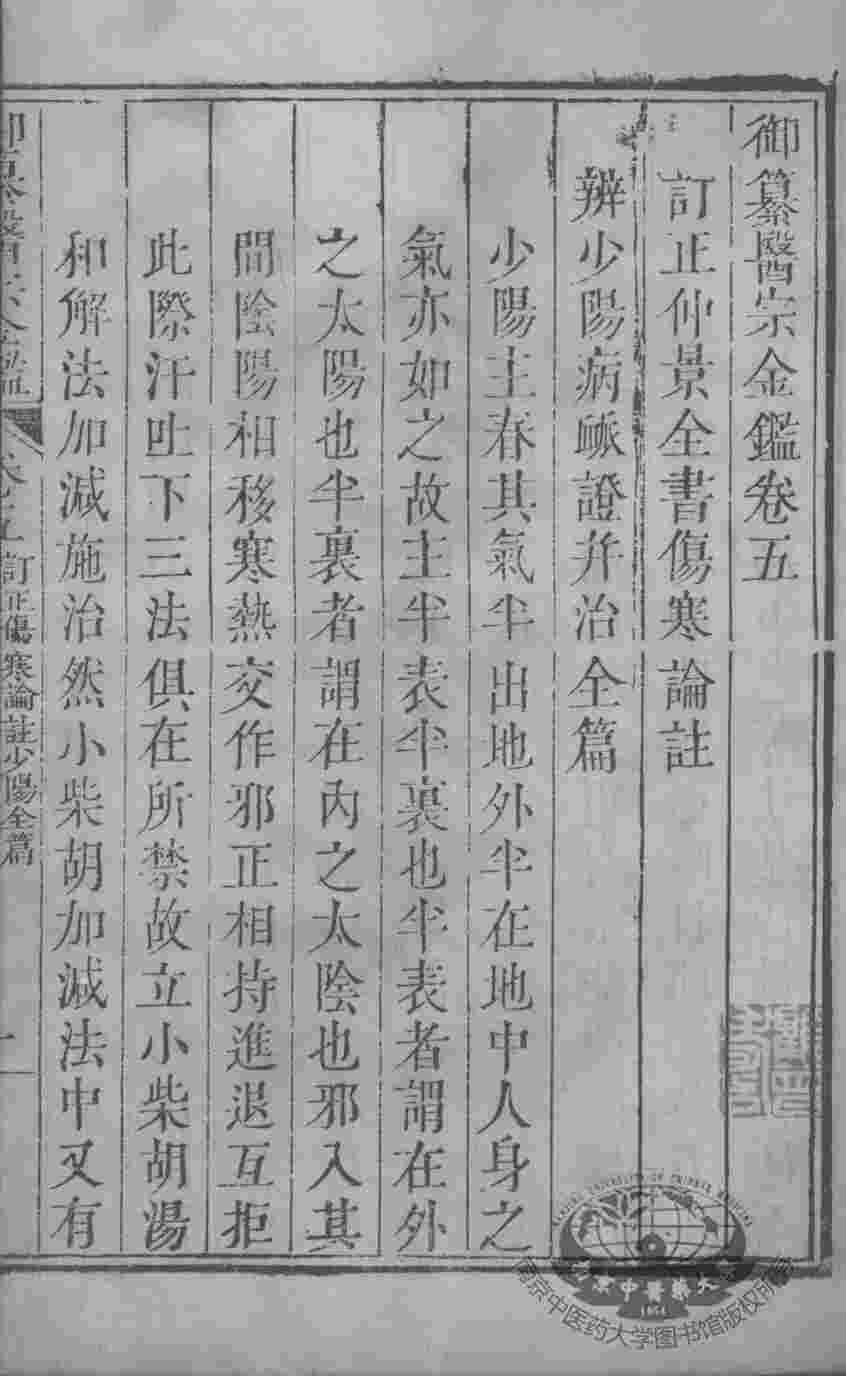 御纂醫宗金鑑卷五
訂正仲景全書傷寒論註
辨少陽病脈證并治全篇
少陽主春其氣半出地外半在地中人身之
氣亦如之故主半表半裏也半表者謂在外
之太陽也半裏者謂在內之太陰也邪入其
間陰陽相移寒熱交作邪正相持進退互拒
此際汗吐下三法俱在所禁故立小柴胡湯
和解法加減施治然小柴胡加減法中又有
卷五 訂正傷寒論註少陽全篇
NANJING UNIVERSITY OF CHINESE MEDICINE
南京中醫藥大學
1954
南京中医药大学图书馆版权所有